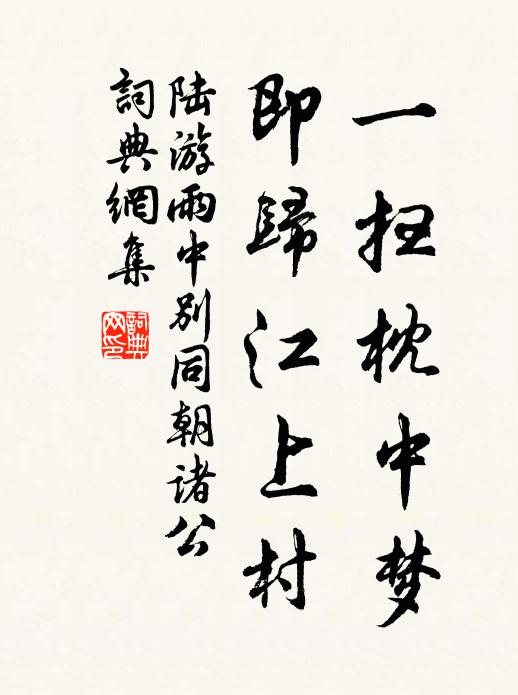 一扫枕中梦
即歸江上村
陆游雨中别同朝诸公
詞典網集
詞典网印